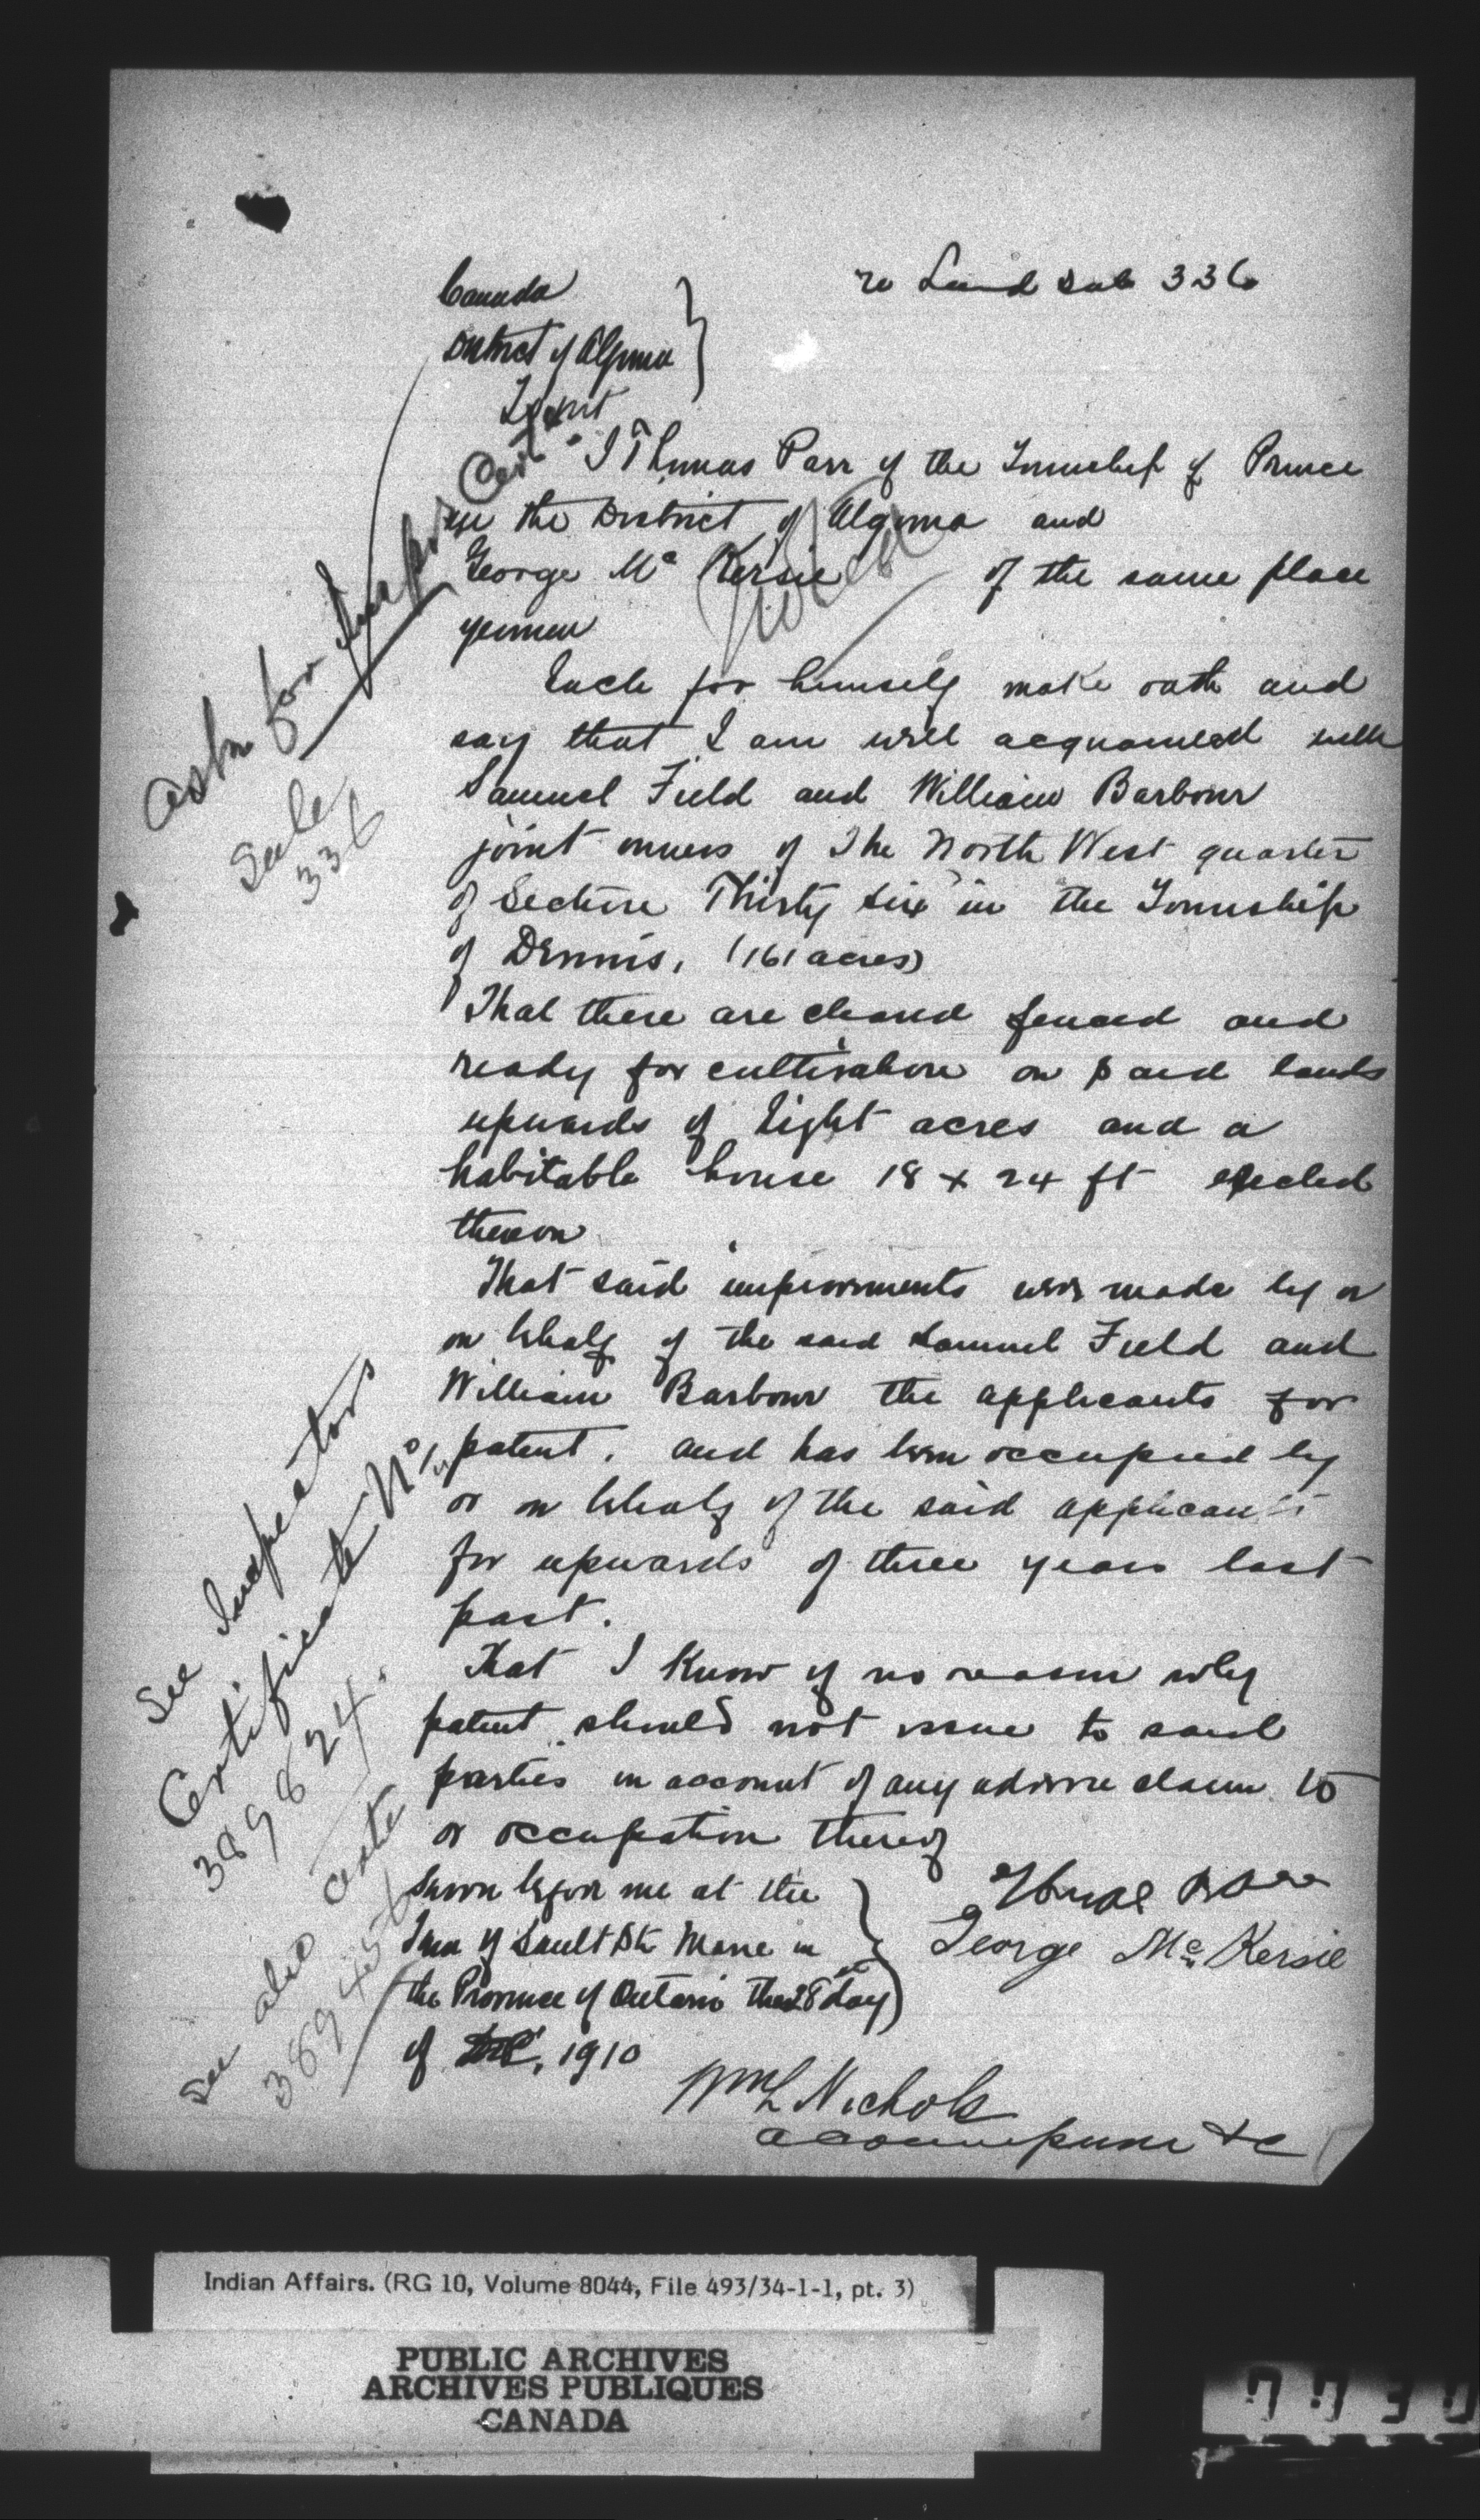 re Land Sale 336
Canada
District of Algoma
To wit
I Thomas Parr of the Township of Prince
in the District of Algoma and
George Mc Kersie of the same place
yeomen
Each for himself make oath and
say that I am well acquainted with
Samuel Field and William Barbour
joint owners of The North West quarter
of Section Thirty six in the Township
of Dennis, (161 acres)
That there are cleared fenced and
ready for cultivation on said lands
upwards of Eight acres and a
habitable house 18 x 24 ft erected
thereon
That said improvements were made by or
on behalf of the said Samuel Field and
William Barbour the applicants for
patent. and has been occupied by
or on behalf of the said applicants
for upwards of three years last
past.
That I know of no reason why
patent should not issue to said
parties on account of any adverse claim to
or occupation thereof
Sworn before me at the
Town of Sault Ste Marie in
the Province of Ontario the 28th day
of Dec, 1910
Thomas Parr
George Mc Kersie
Wm L Nichols
a Comm &c
Ask for Inspr's Cert
Sale
336
See Inspectors
Certificate No
389824.
See also certe
Indian Affairs. (RG 10, Volume 8044, File 493/34-1-1, pt. 3)
PUBLIC ARCHIVES
ARCHIVES PUBLIQUES
CANADA